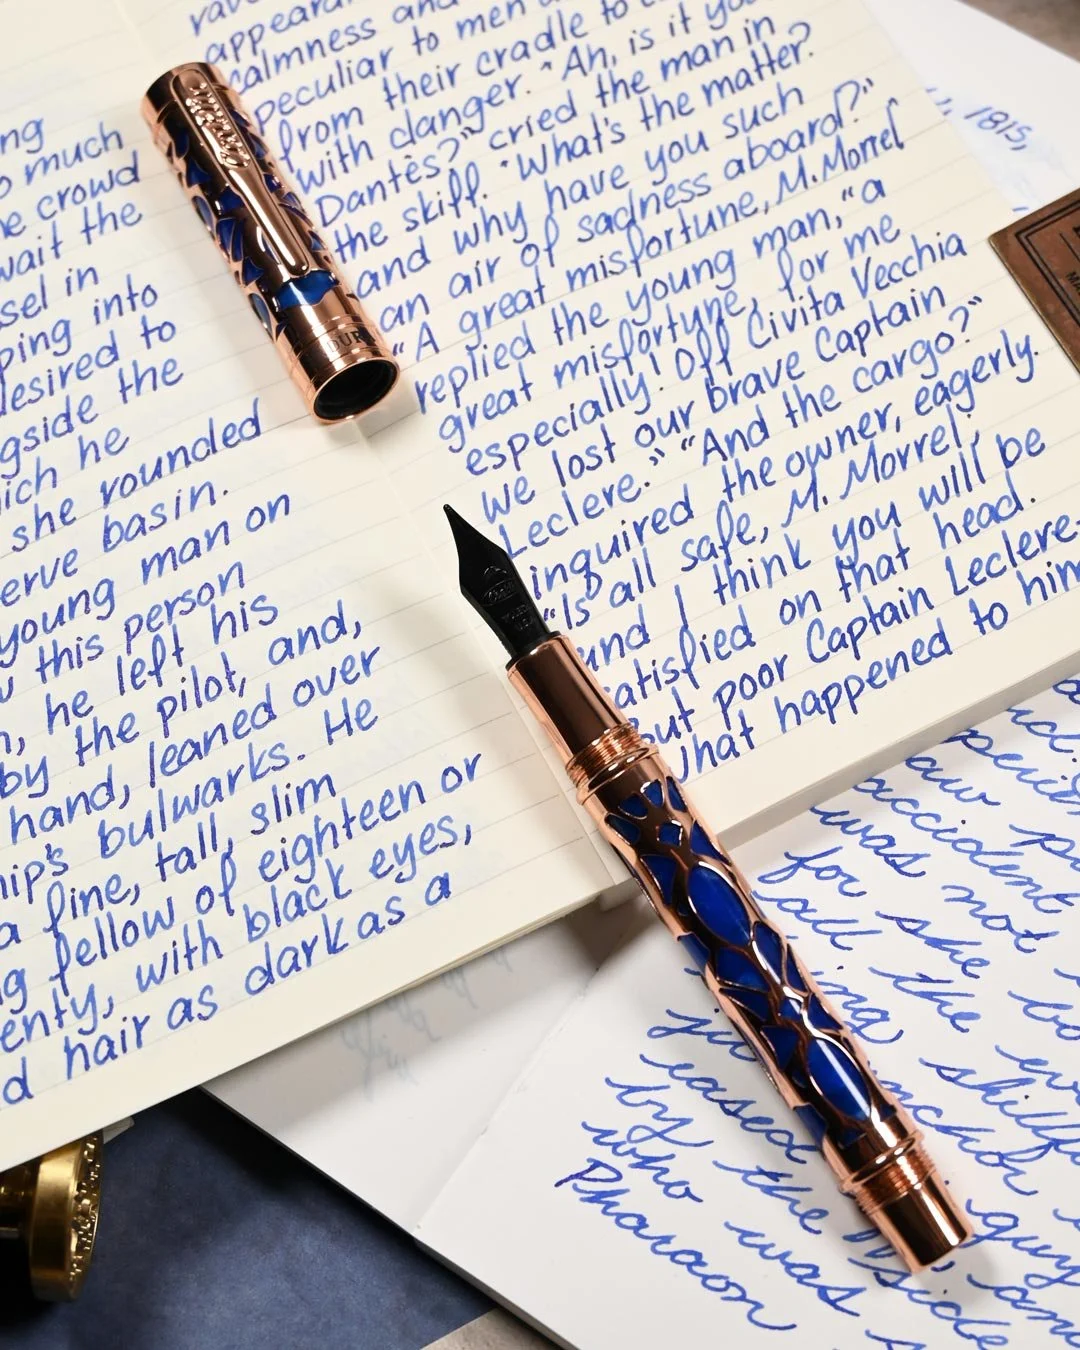 appeara
calmness and
peculiar to men a
from their cradle to
with danger. "Ah, is it you
Dantès?" cried the man in
the skiff. "What's the matter?
and why have you such
an air of sadness aboard?"
"A great misfortune, M. Morrel
replied the young man, "a
great misfortune, for me
especially! Off Civita Vecchia
we lost our brave Captain
Leclere." "And the cargo?"
inquired the owner, eagerly.
"Is all safe, M. Morrel;
and I think you will be
satisfied on that head.
But poor Captain Leclere-
what happened to him
much
crowd
wait the
sel in
ping into
desired to
gside the
ich he
she rounded
erve basin.
young man on
this person
he left his
by the pilot, and,
hand, leaned over
hip's bulwarks. He
a fine, tall, slim
fellow of eighteen or
enty, with black eyes,
d hair as dark as a
1815,
accident
was not
for she
all the
skillfu
by
who was
Pharaon
the